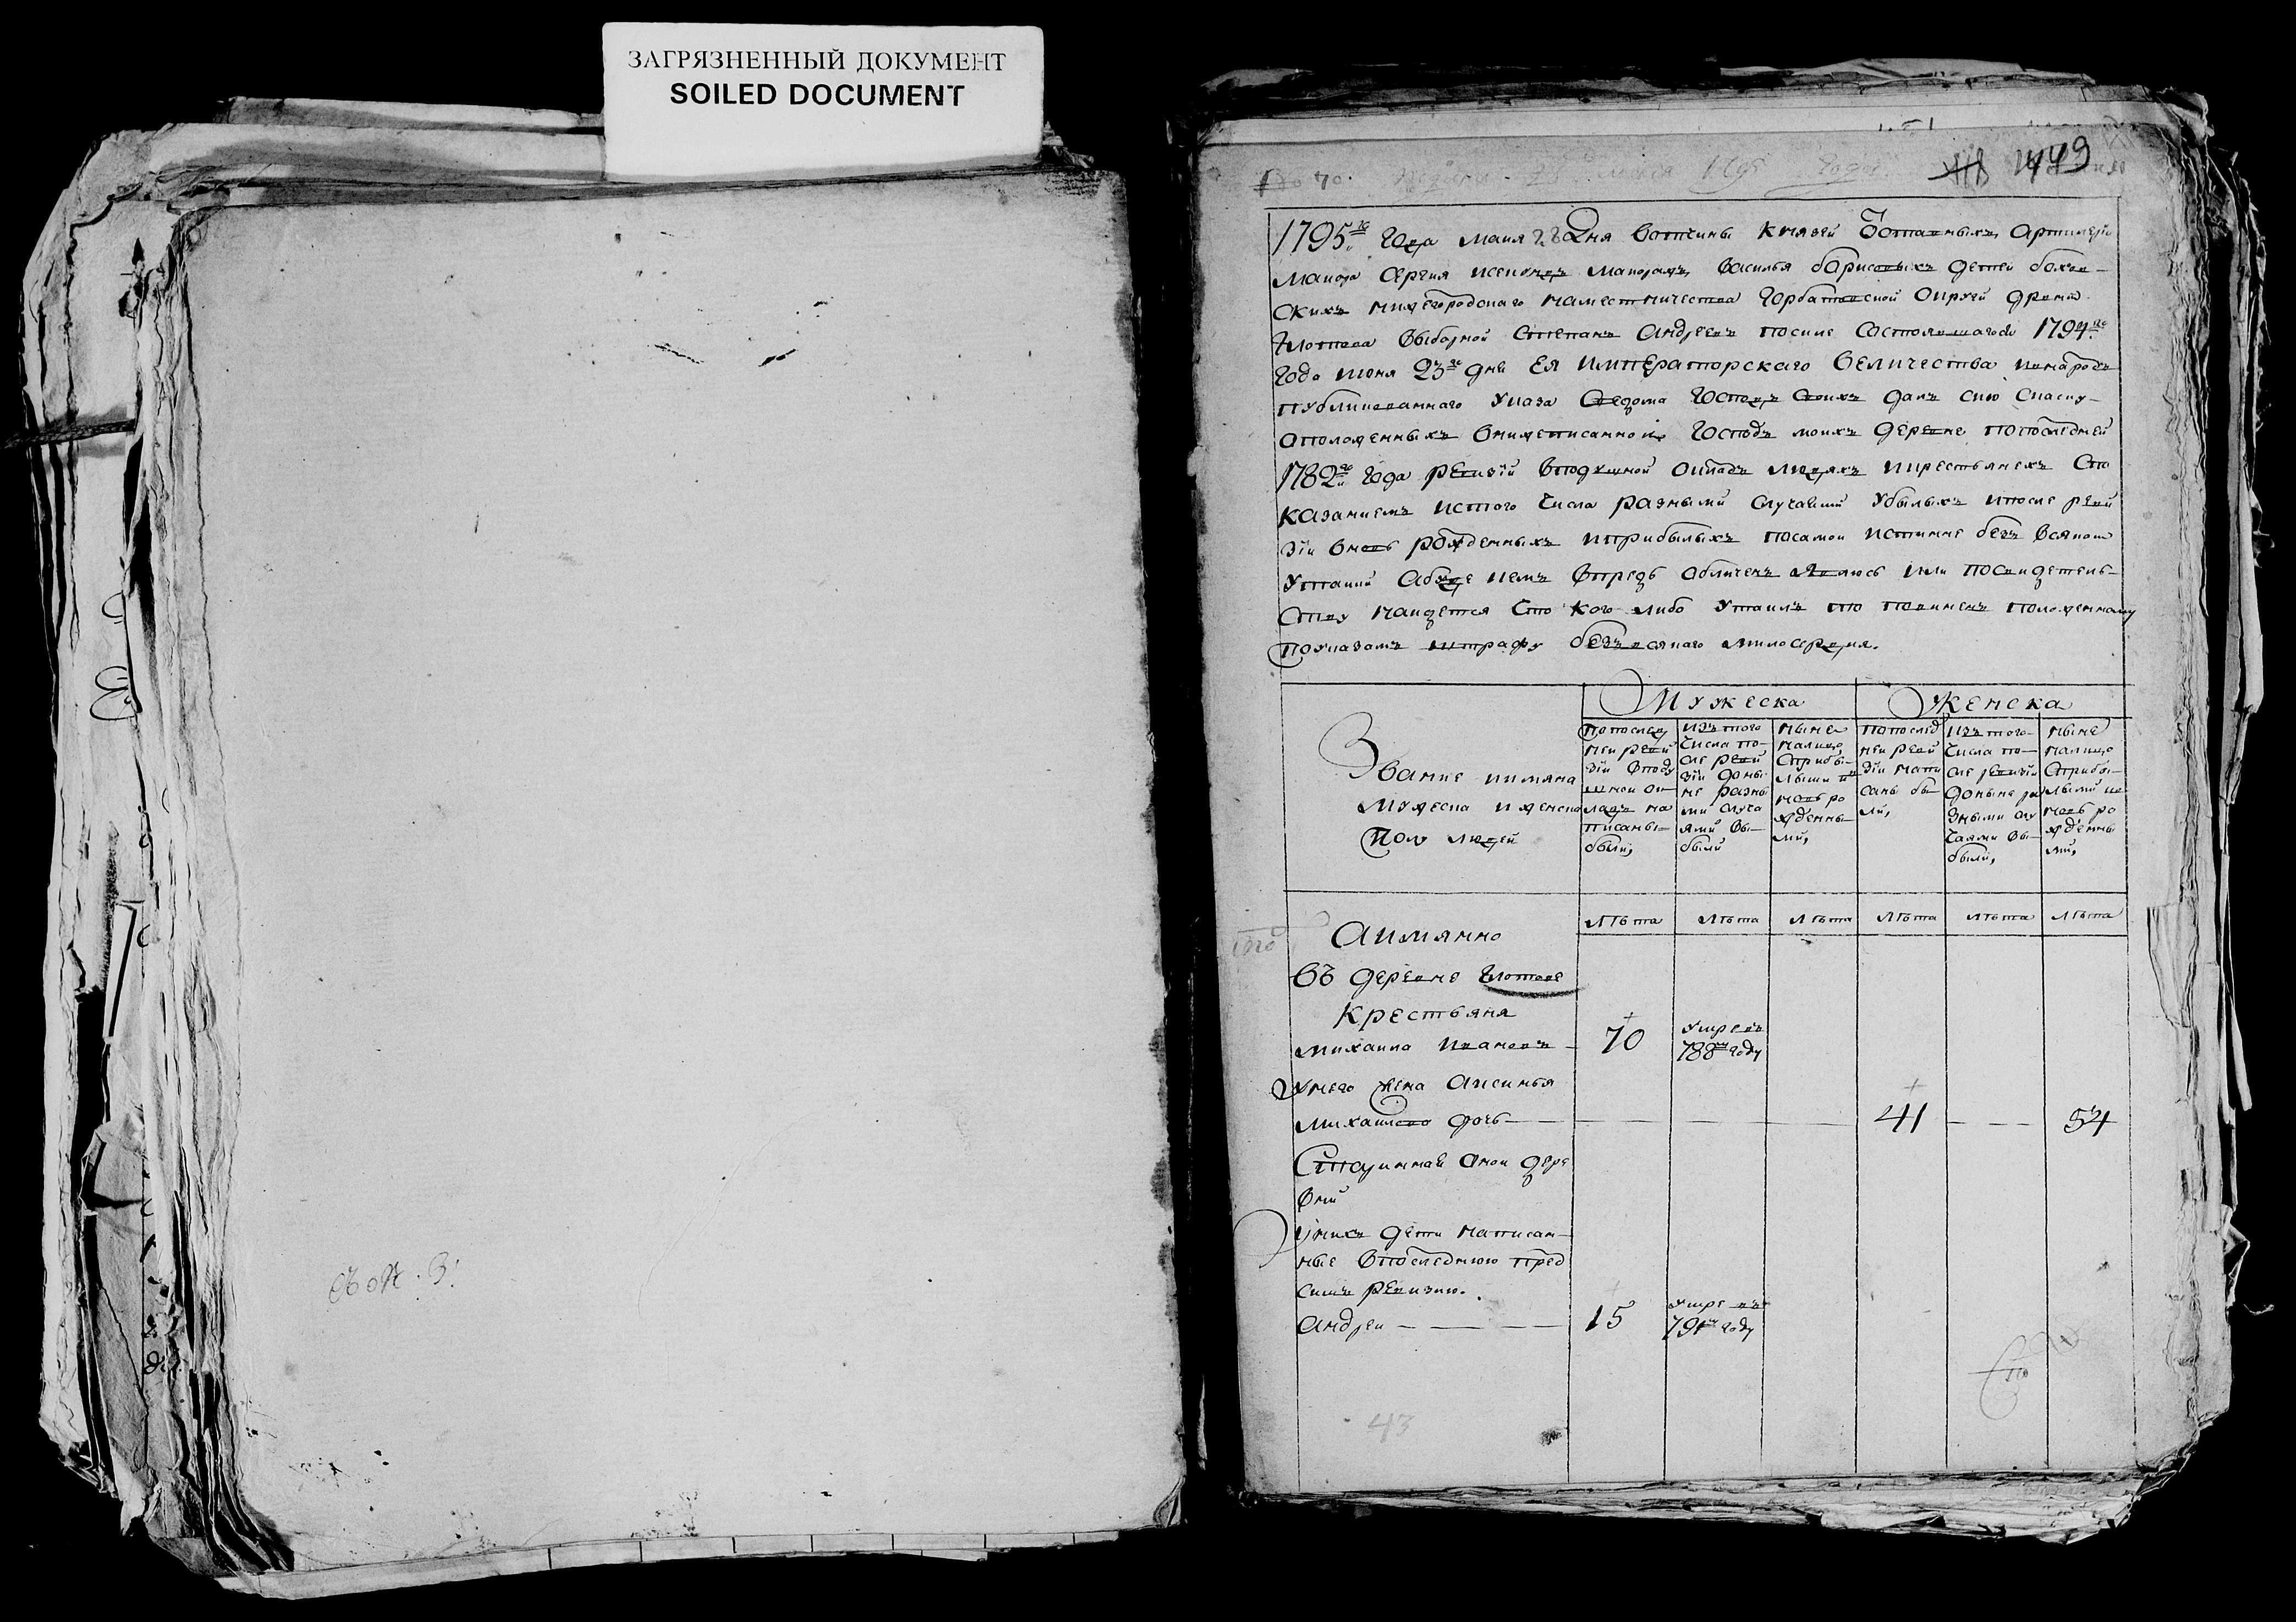 ЗАГРЯЗНЕННЫЙ ДОКУМЕНТ
SOILED DOCUMENT
No 70. 28 1795 года 449
1795го года маия 28 дня вотчины князей артилери
маиора Сергея исекунд маиора Василья борисовых детей
ских нижегородского наместничества Горбатовской округи дрвни
выборной Степан Андреев посиле состоявшагося 1794го
Года июня 23го дня Ея императорскаго величества инарод
публикованнаго указа Сведома Господ Своих дал сию Скаску
оположенных внижеписанной Господ моих деревне попоследней
1782го года ревизии вподушной оклад людях икрестьянех Спо
казанием истого числа разными случаями убылых ипосле реви
зии вновь рожденных иприбылых посамой истинне без всякой
утайки Абуде кем впредь обличен явлюсь или посвидетель
ству наидется Что кого либо утаил то повинен положенному
поуказам штрафу безвсякаго милосердия.
Мужеска Женска
Звание иимяна
Мужеска иженска
Полу людей
попослед
ней реви
зии вподу
шной ок
лад на
писаны
были,
изтого
числа по
сле реви
зии доны
не разны
ми случа
ями вы
были
ныне
налицо
Сприбы
лыми и
новь ро
жденны
ми,
попослед
ней реви
зии напи
саны бы
ли,
изтого
числа по
сле ревизии
доныне ра
зными слу
чаями вы
были,
ныне
налицо
Сприбы
лыми и
новь ро
жденны
ми,
Аимянно лѣта лѣта лѣта лѣта лѣта лѣта
Въ деревне
Крестьяня
михаила Иванов 70 умре в 788м году
Унего жена Аксинья
михаилова дочь 41 54
Старинная оной дере
вни
Уних дети написан
ные впоследнюю пред
сим ревизию.
Андреи 15 умре в 791м году
43